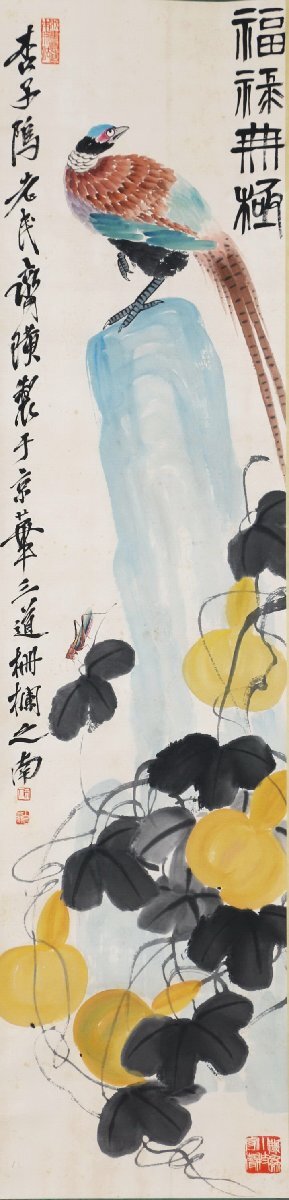 福祿無極
杏子隝老民齊璜製于京華三道柵欄之南